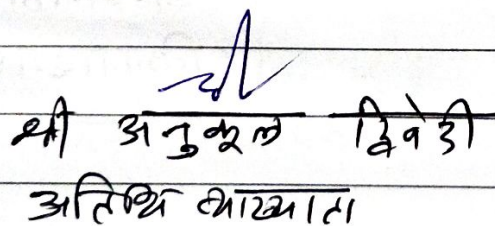 श्री अनुकूल द्विवेदी
अतिथि व्याख्याता